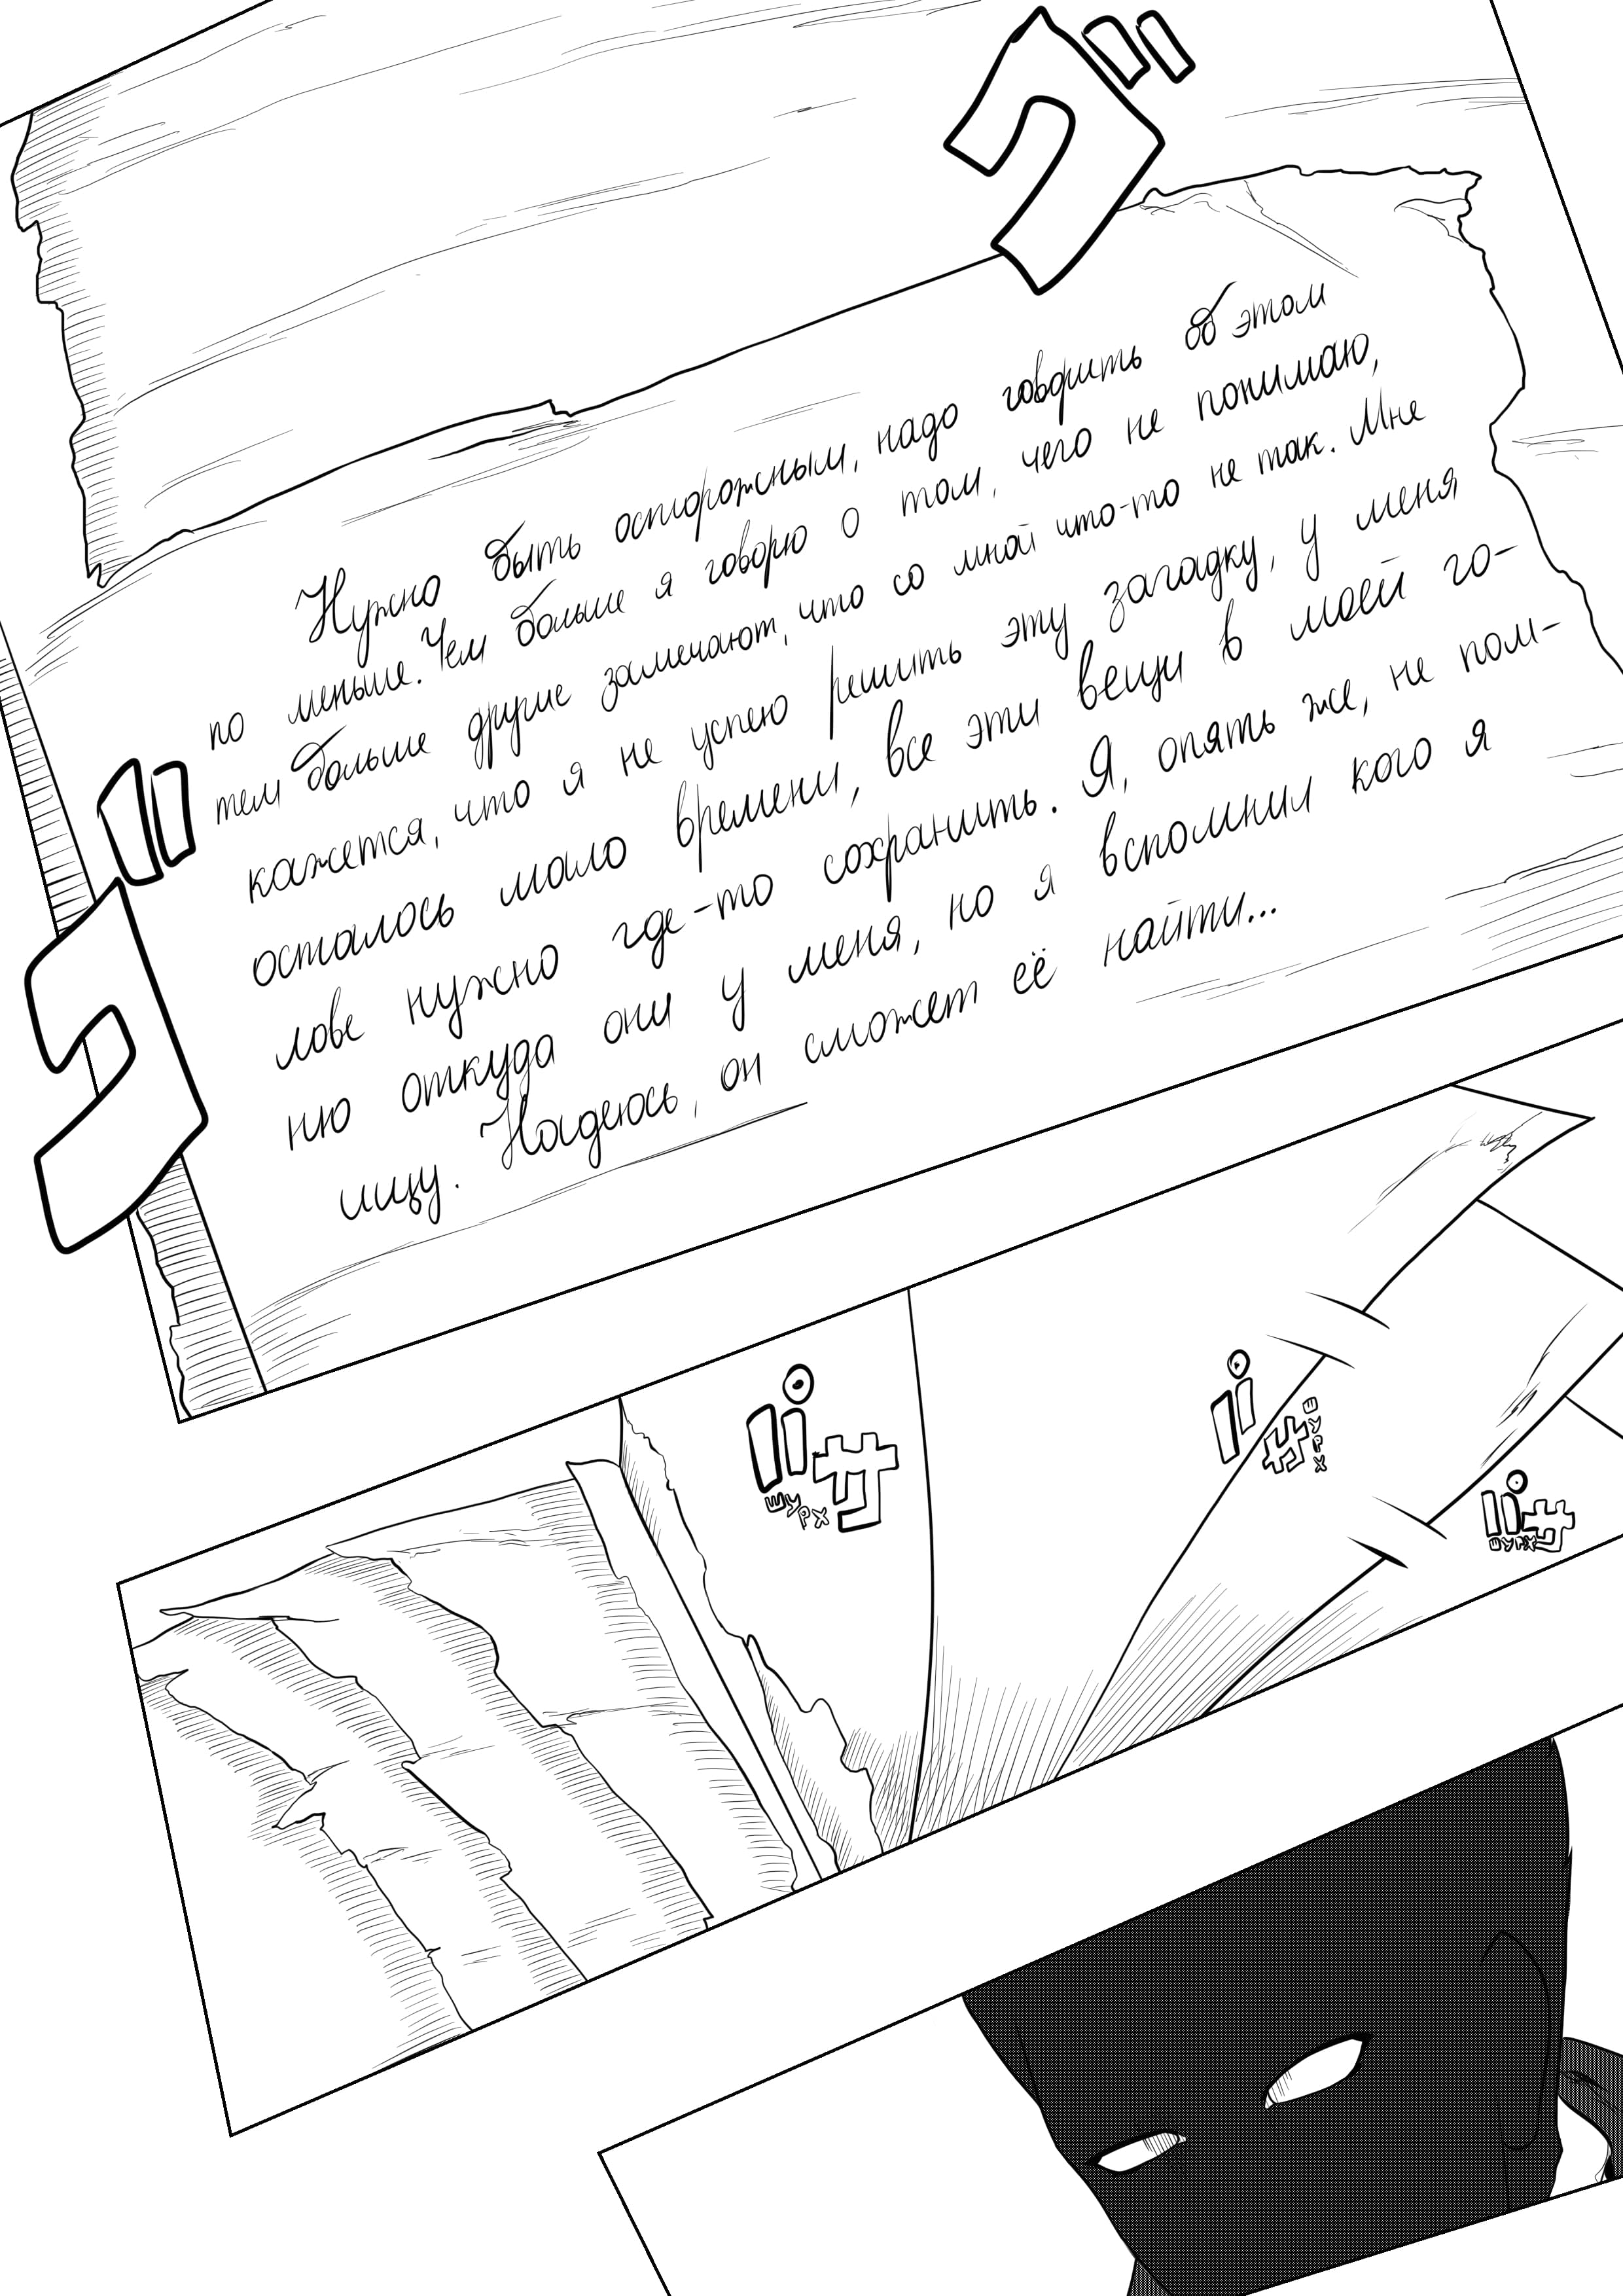 ゴ
Нужно быть осторожным, надо говорить об этом
по меньше. Чем больше я говорю о том, чего не понимаю,
тем больше другие замечают, что со мной что-то не так. Мне
кажется, что я не успею решить эту загадку, у меня
осталось мало времени, все эти вещи в моей го-
лове нужно где-то сохранить. Я, опять же, не пом-
ню откуда они у меня, но я вспомнил кого я
ищу. Надеюсь, он сможет её найти...
ゴ
パサ
шурх
パサ
шурх
パサ
шурх